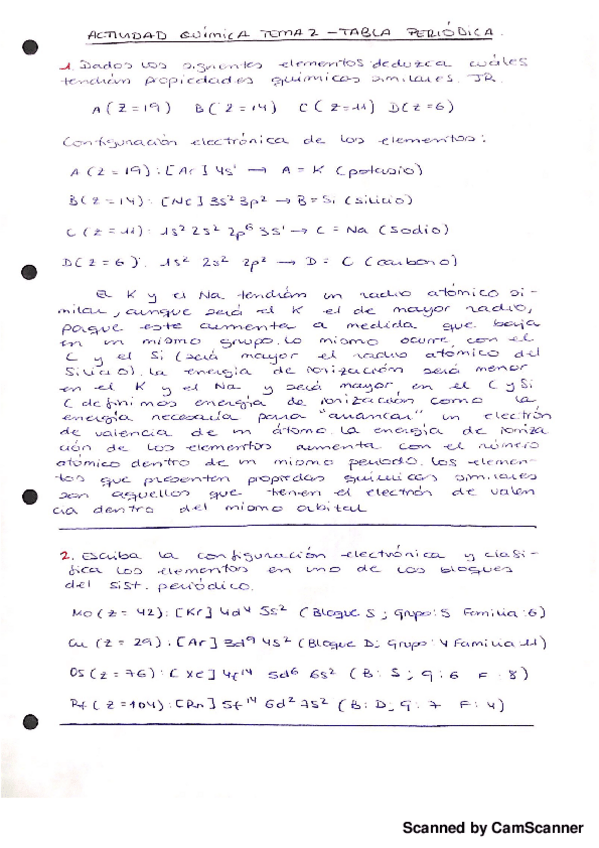 ACTIVIDAD QUÍMICA TEMA 2 - TABLA PERIÓDICA.
1. Dados los siguientes elementos deduzca cuáles
tendrán propiedades químicas similares. JR.
A (Z = 19) B (Z = 14) C (Z = 11) D (Z = 6)
Configuración electrónica de los elementos:
A (Z = 19) : [Ar] 4s¹ → A = K (potasio)
B (Z = 14) : [Ne] 3s² 3p² → B = Si (silicio)
C (Z = 11) : 1s² 2s² 2p⁶ 3s¹ → C = Na (Sodio)
D (Z = 6) : 1s² 2s² 2p² → D = C (carbono)
El K y el Na tendrán un radio atómico si-
milar, aunque será el K el de mayor radio,
porque este aumenta a medida que baja
en un mismo grupo. Lo mismo ocurre con el
C y el Si (será mayor el radio atómico del
Silicio). La energía de ionización será menor
en el K y el Na y será mayor en el C y Si
( definimos energía de ionización como la
energía necesaria para "arrancar" un electrón
de valencia de un átomo. La energía de ioniza
ción de los elementos aumenta con el número
atómico dentro de un mismo periodo. Los elemen-
tos que presenten propiedas químicas similares
son aquellos que tienen el electrón de valen
cia dentro del mismo orbital
2. Escriba la configuración electrónica y clasi-
fica los elementos en uno de los bloques
del sist. periódico.
Mo (Z = 42) : [Kr] 4d⁴ 5s² (Bloque S ; Grupo: 5 Familia : 6)
Cu (Z = 29) : [Ar] 3d⁹ 4s² (Bloque D; Grupo: 4 Familia : 11)
Os (Z = 76) : [Xe] 4f¹⁴ 5d⁶ 6s² (B: S ; G : 6 F : 8)
Rf (Z = 104) : [Rn] 5f¹⁴ 6d² 7s² (B: D; G: 7 F: 4)
Scanned by CamScanner